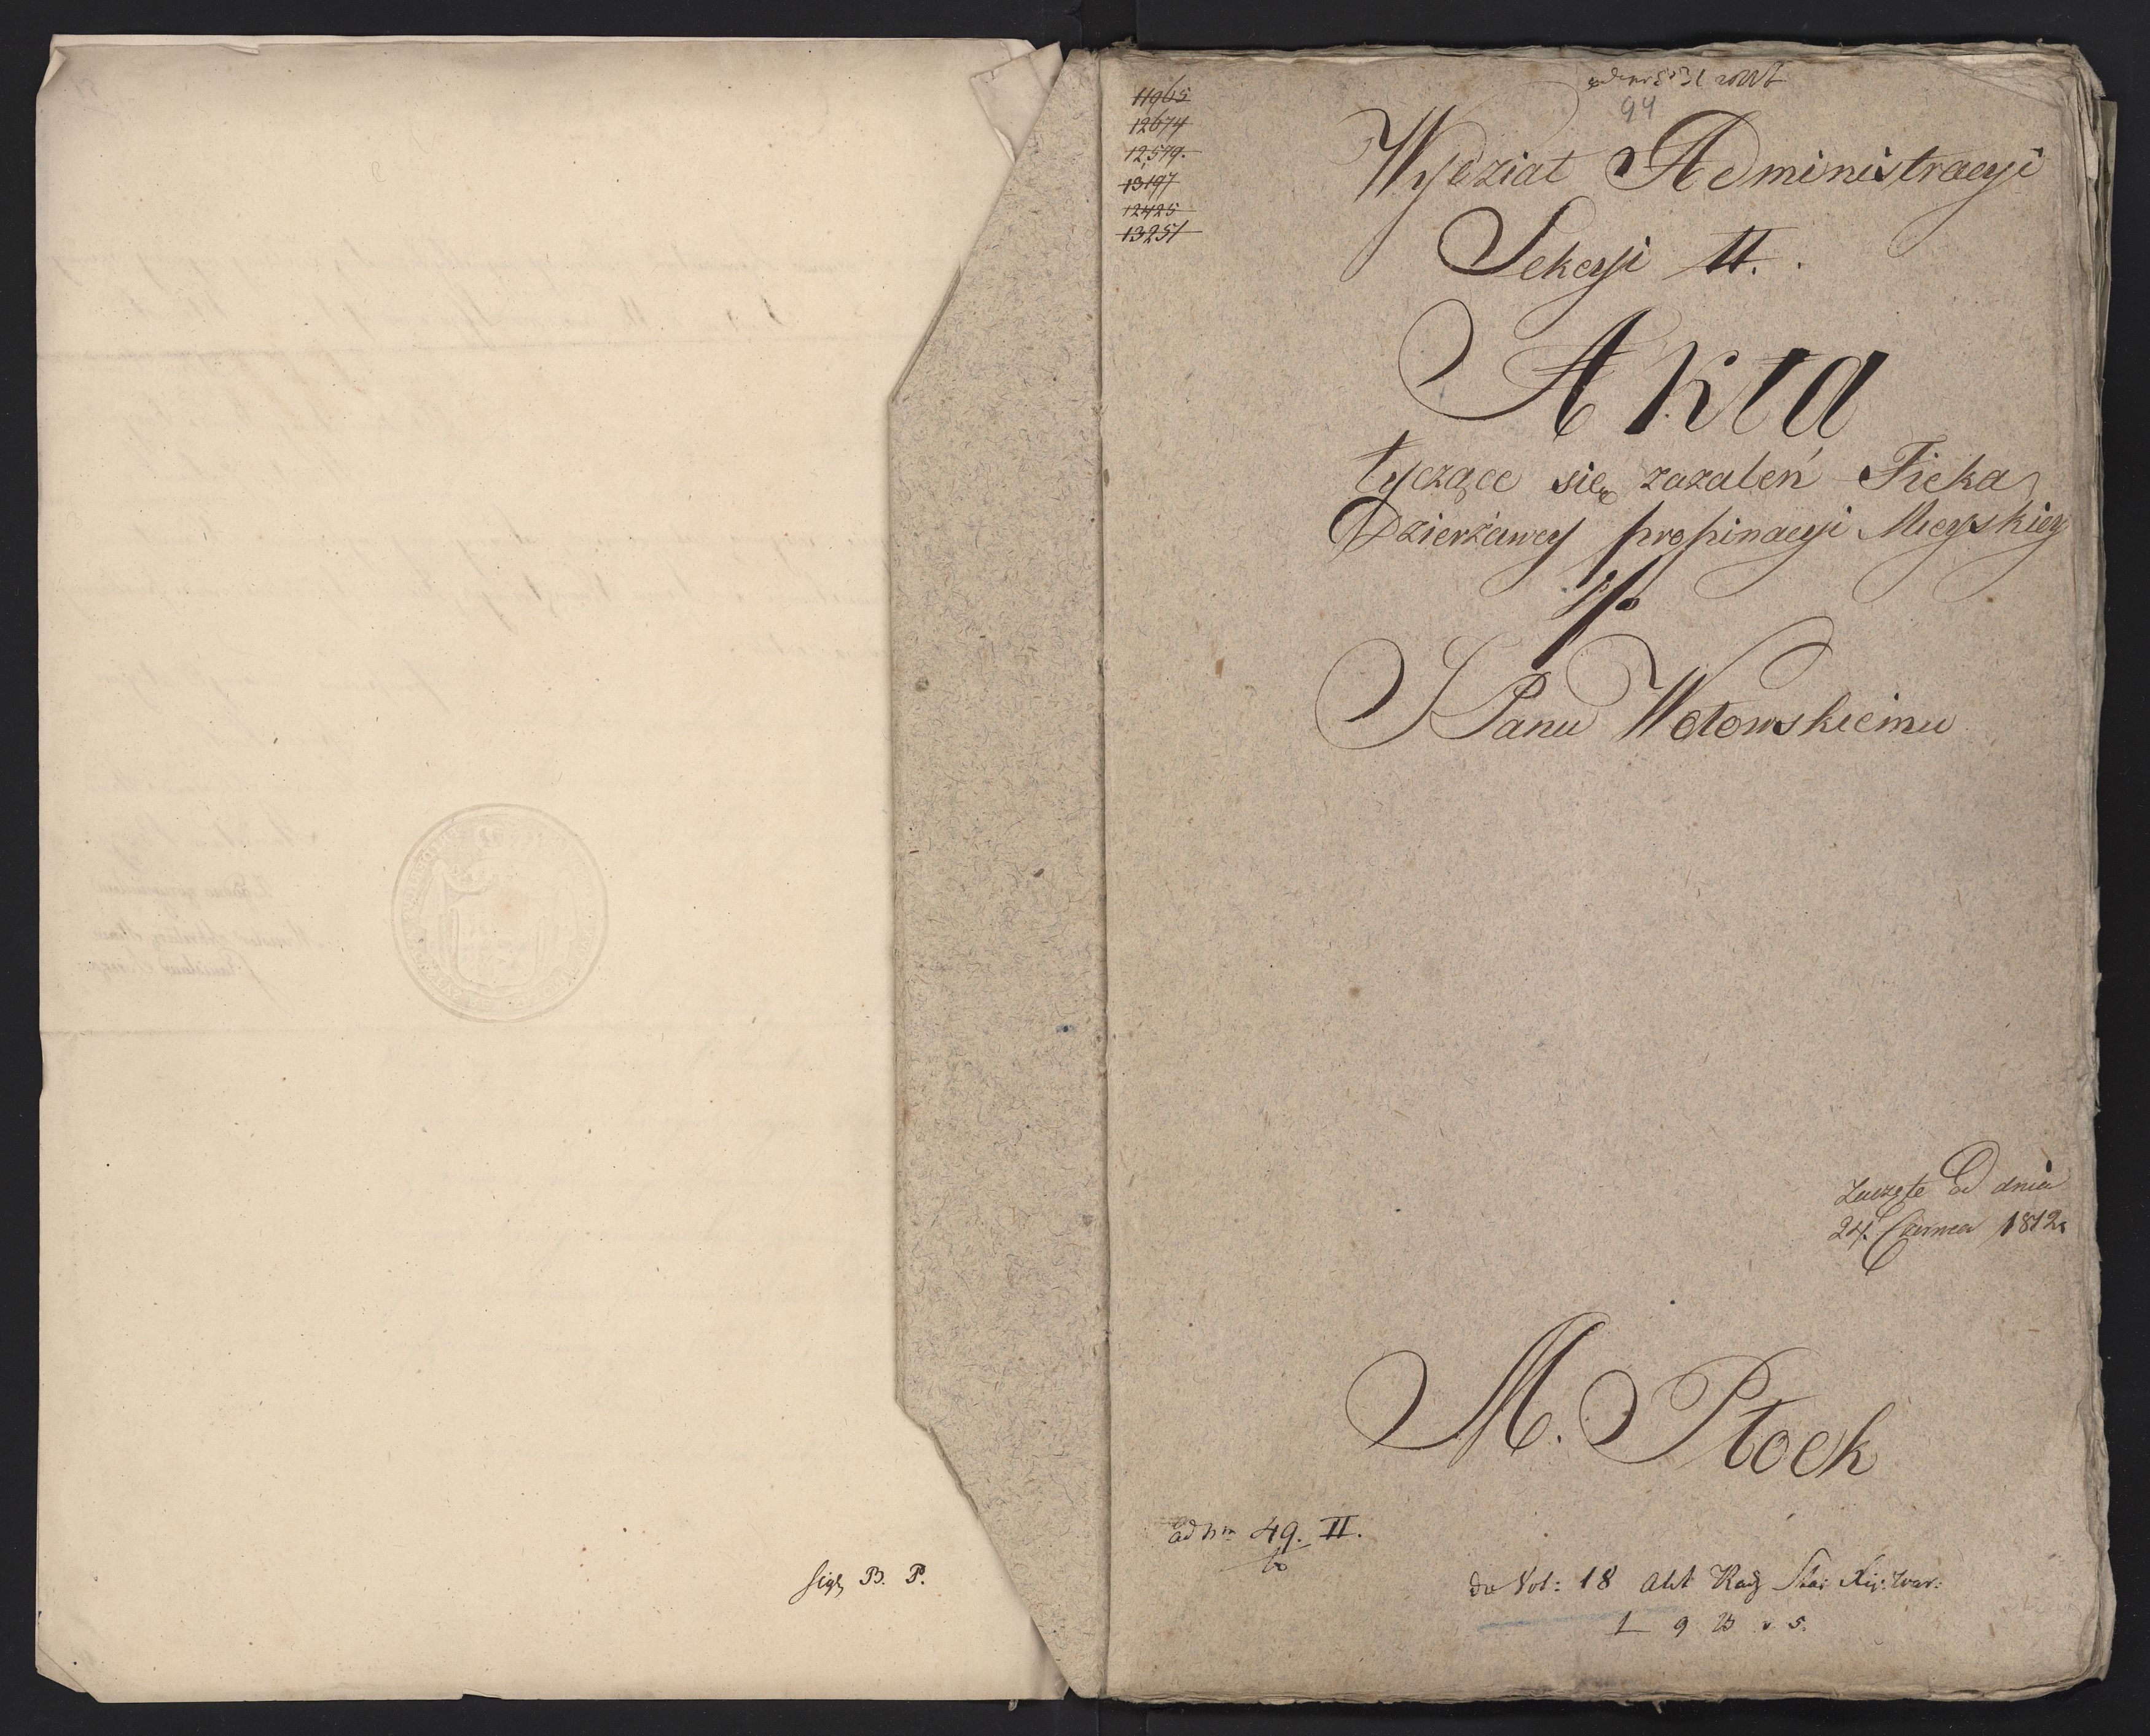 sigl, B. P.
11965
12674
12,579.
13197
12425
13251
94
Wydział Administracyi
Sekcyi II.
Akta
tyczące się zazaleń Ficka
Dzierżawcy propinacyi Mieyskiey
p/o
J Panu Wołowskiemu
Zaczęte od dnia
24. Czerwca 1812.
M. Płock
ad Nm 49. II.
do Vol: 18 Akt Rady Sta: Xię: War: